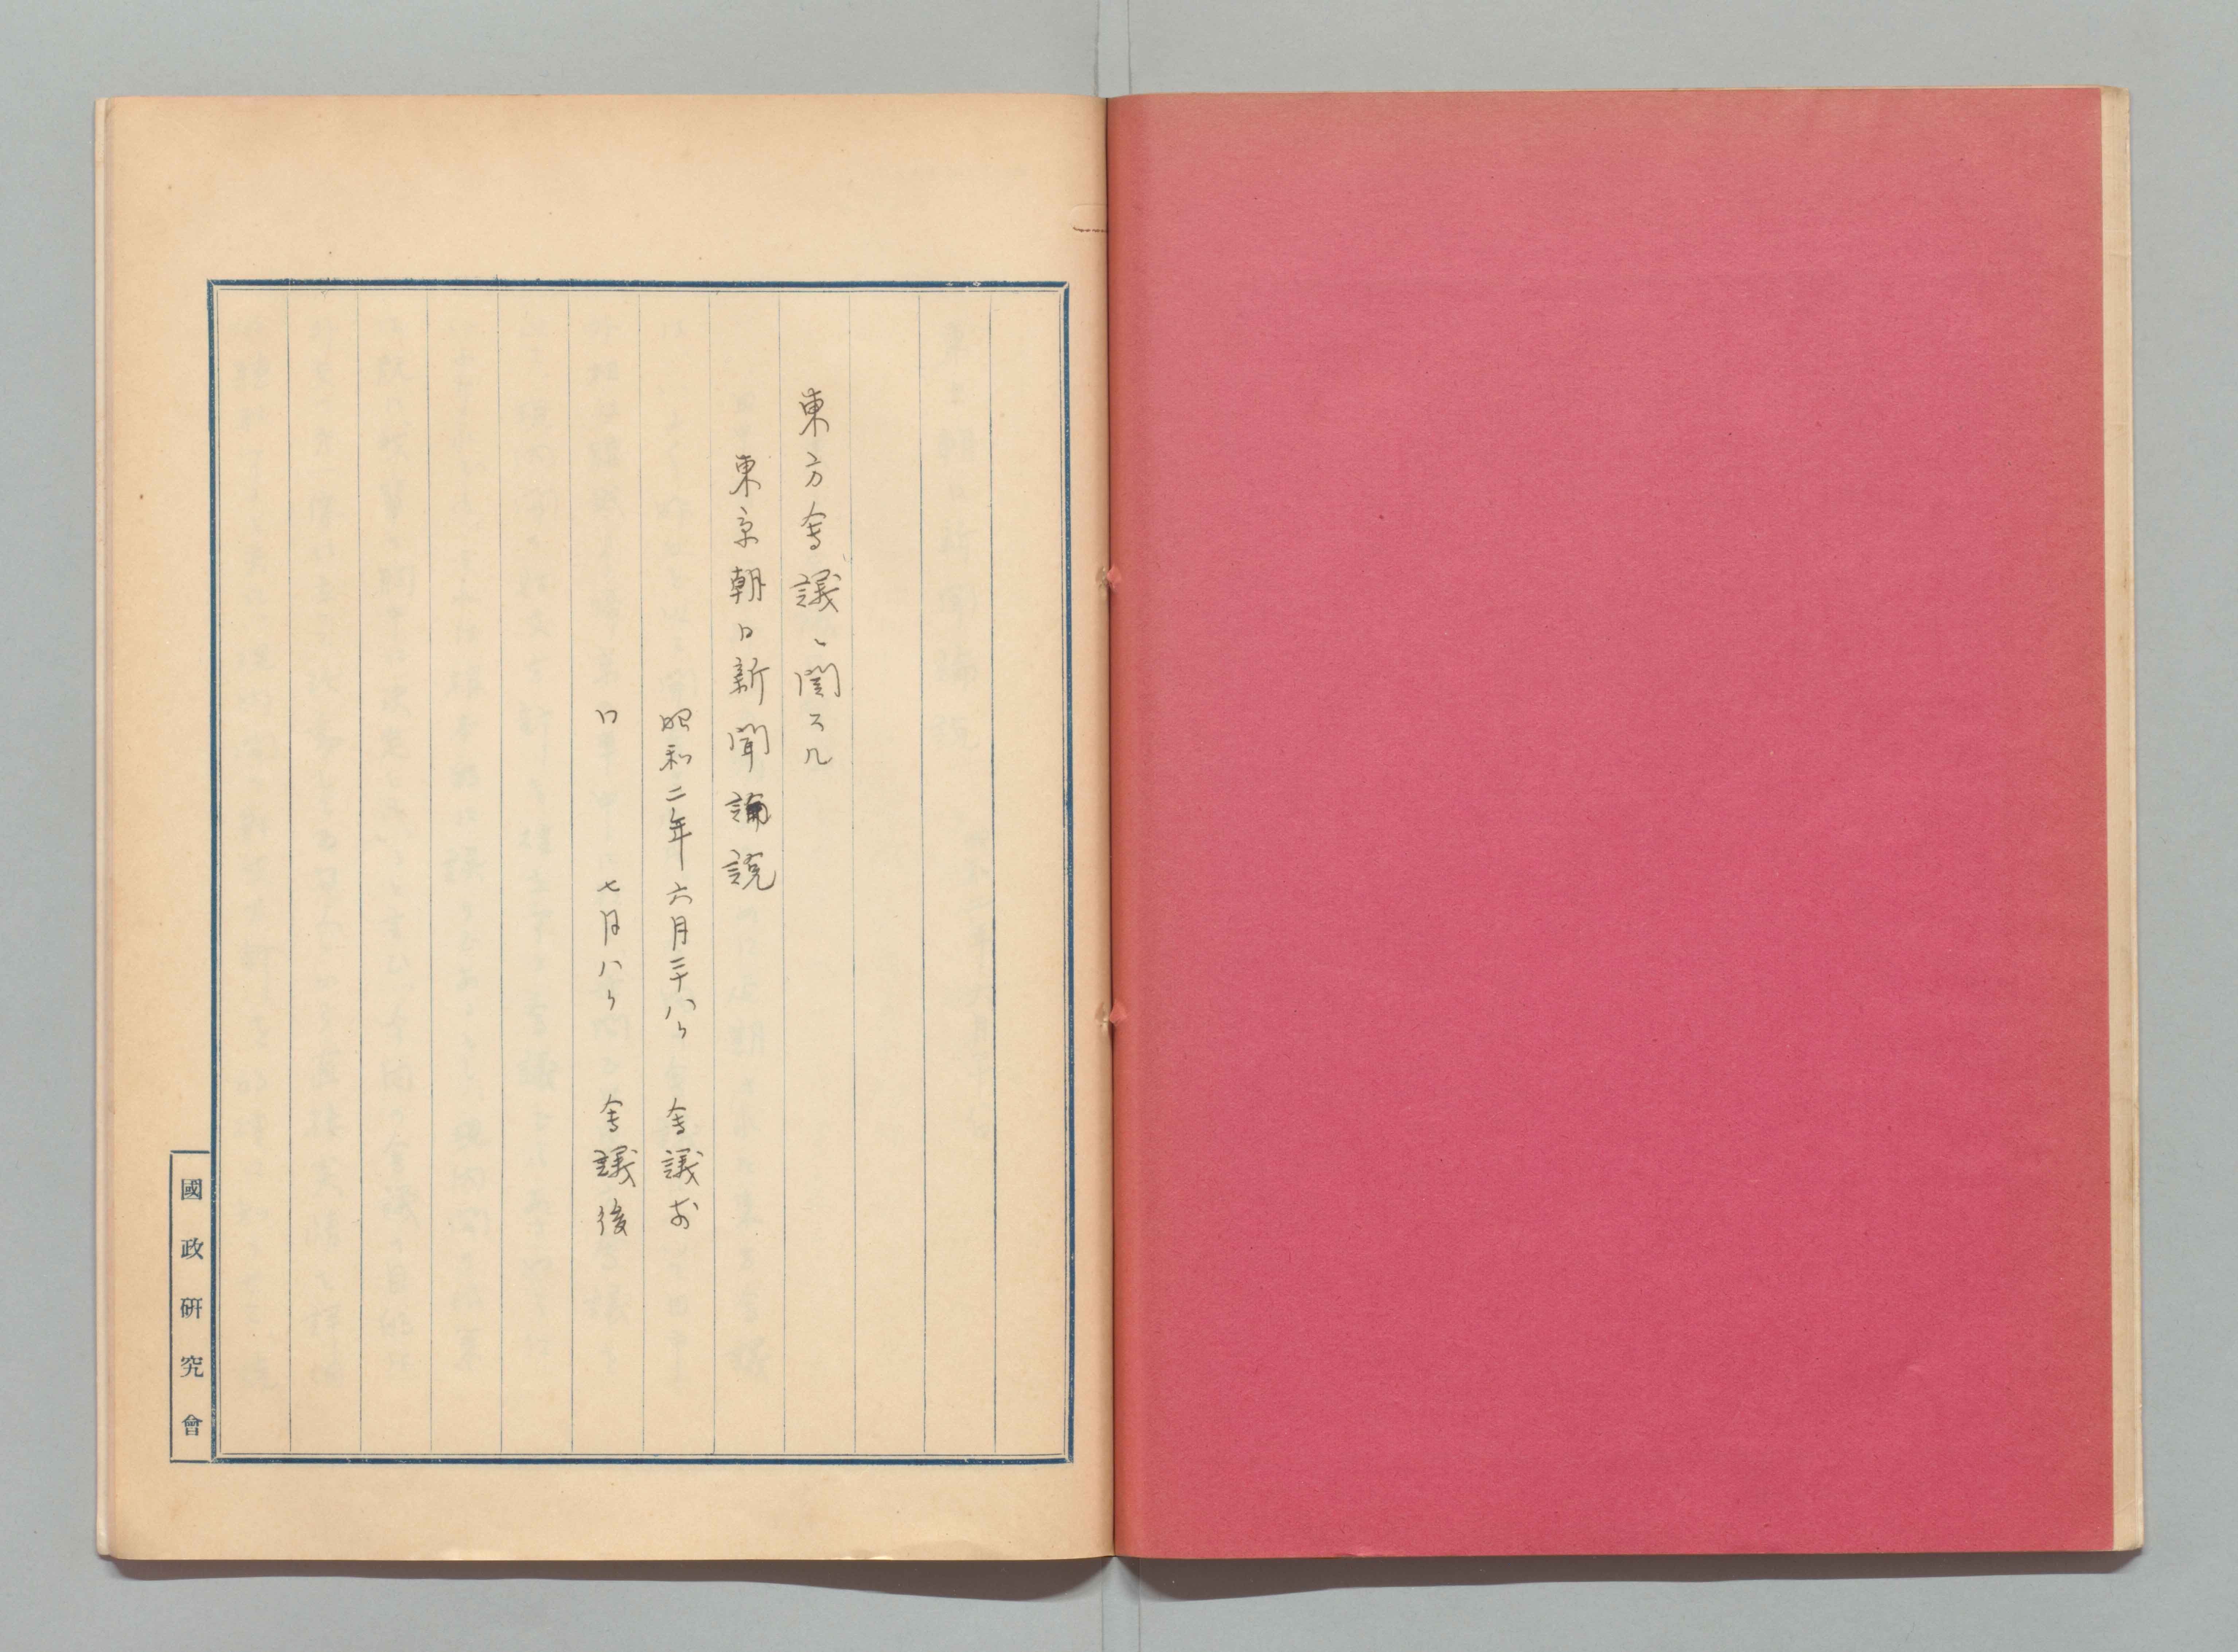 東方会議ニ関スル
東京朝日新聞論説
昭和二年六月二十八日 会議前
〃 七月八日 会議後
國政研究會